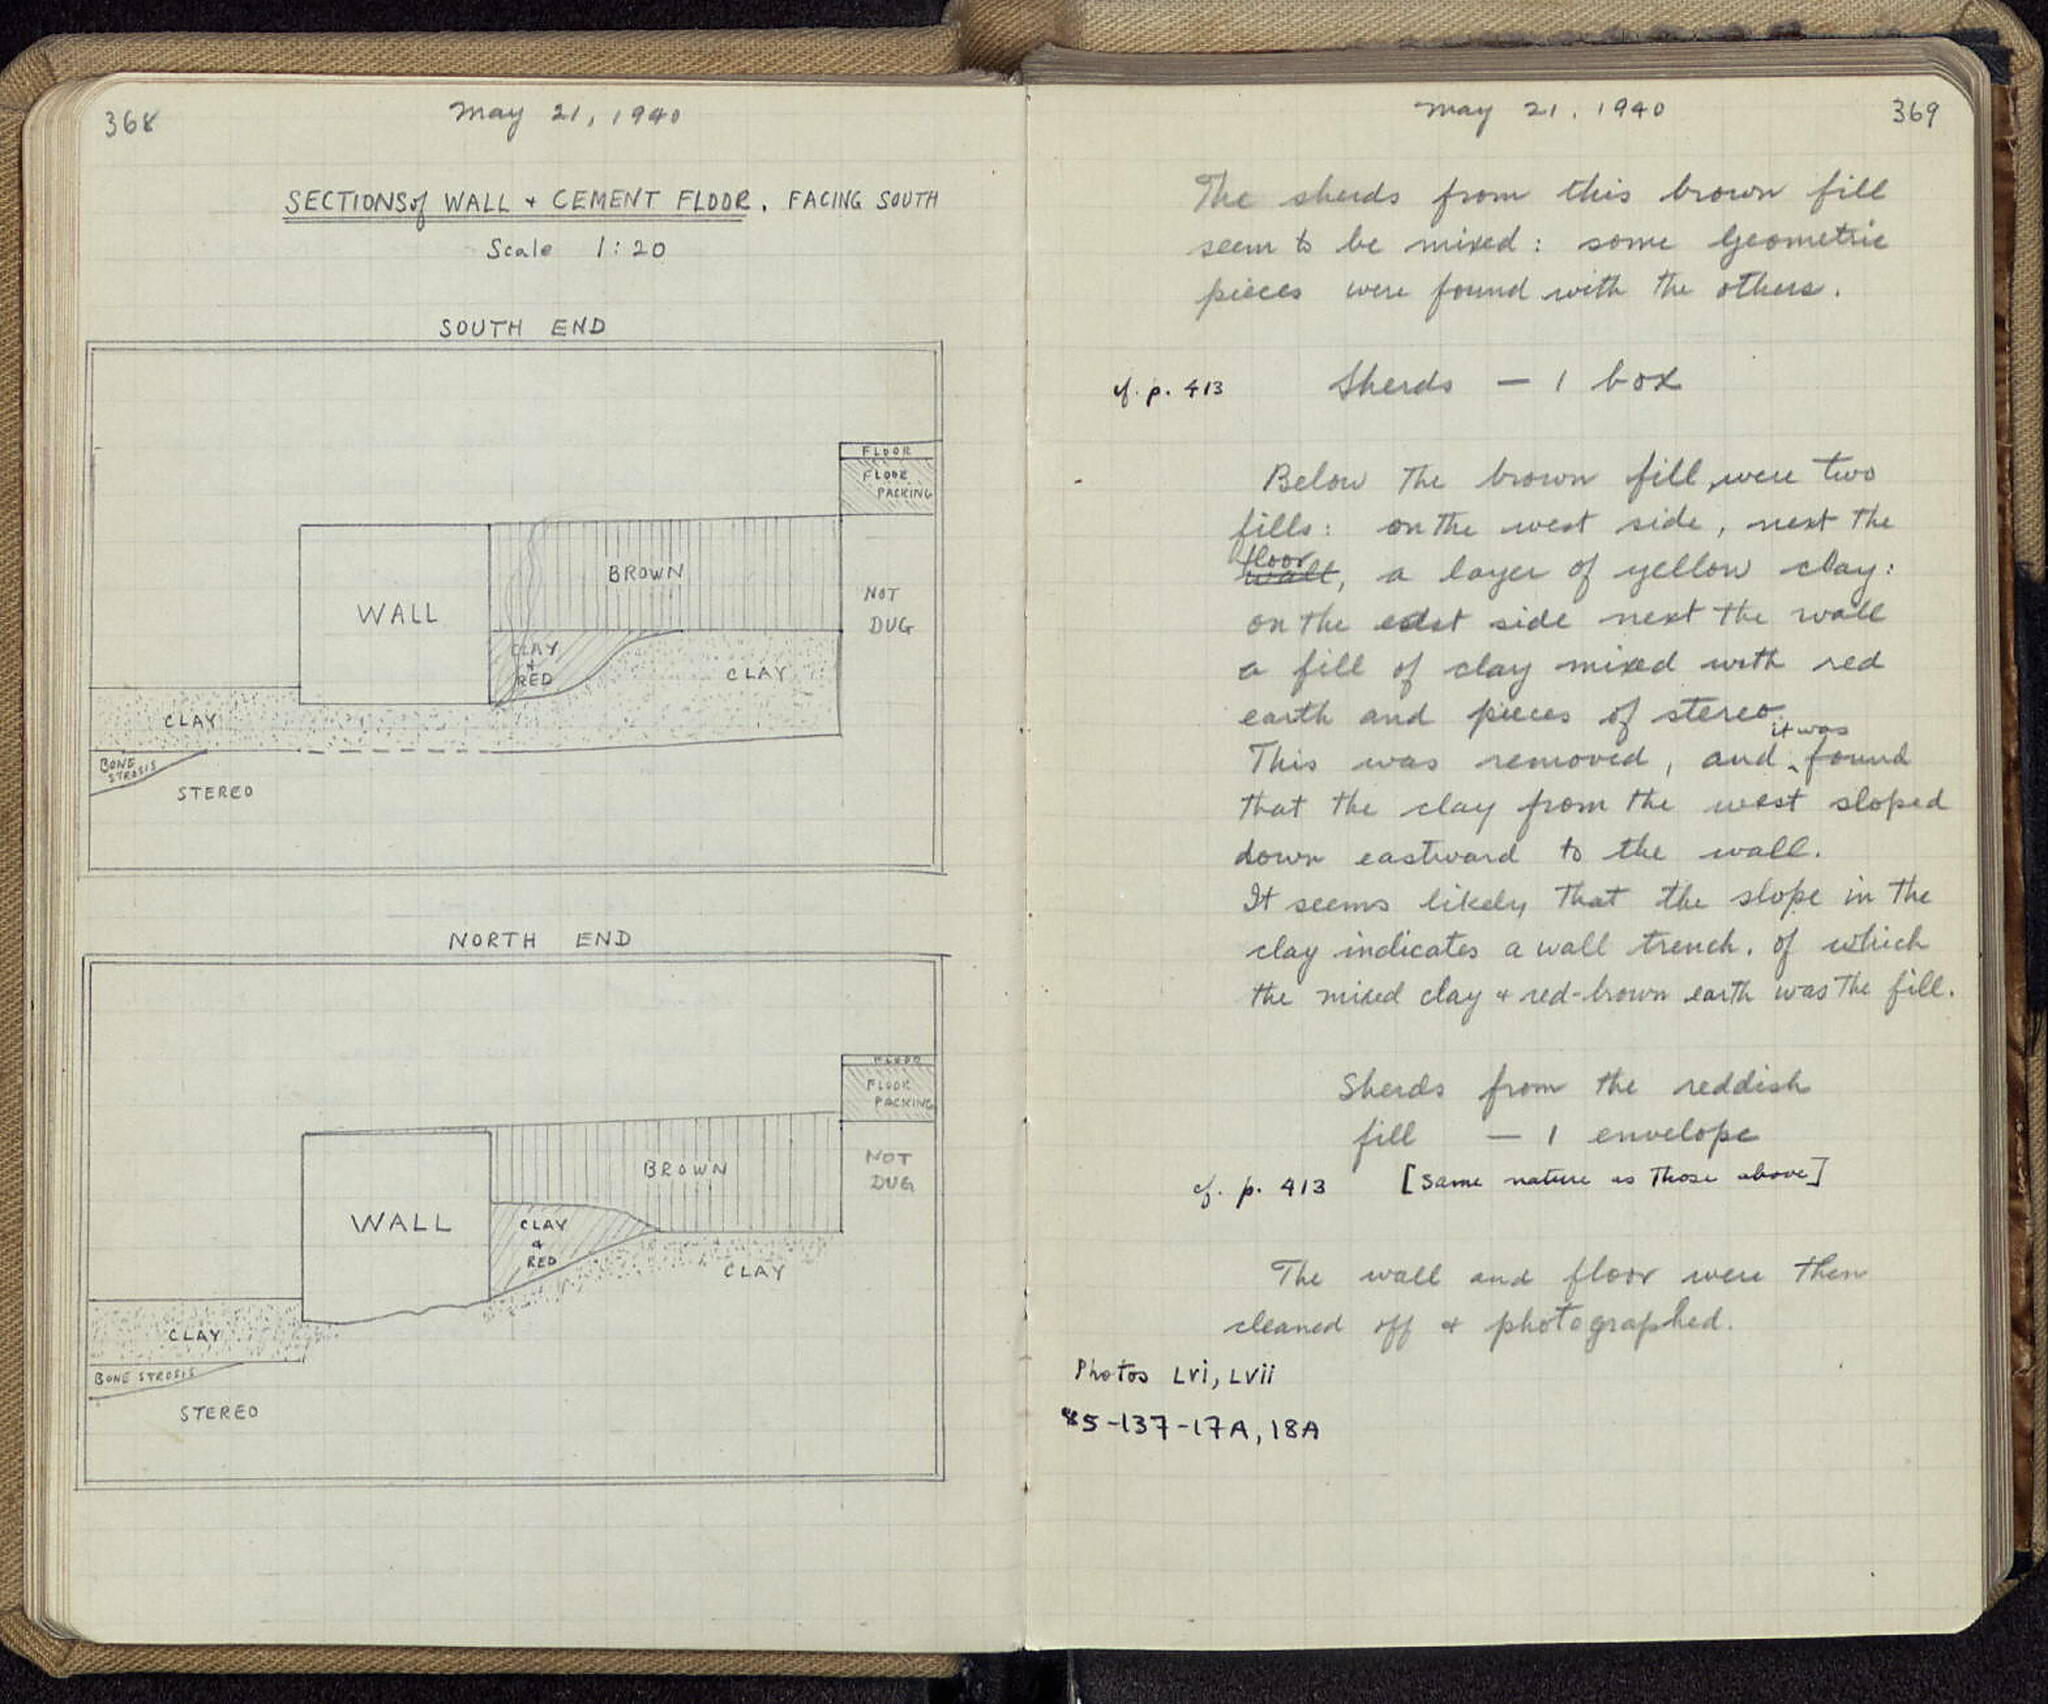 368
May 21, 1940
SECTIONS of WALL + CEMENT FLOOR. FACING SOUTH
Scale 1:20
SOUTH END
FLOOR
FLOOR
PACKING
BROWN
NOT
DUG
WALL
CLAY
+
RED
CLAY
CLAY
BONE
STROSIS
STEREO
NORTH END
FLOOR
FLOOR
PACKING
BROWN
NOT
DUG
WALL
CLAY
+
RED
CLAY
CLAY
BONE STROSIS
STEREO
May 21, 1940
369
The sherds from this brown fill
seem to be mixed: some Geometric
pieces were found with the others.
cf. p. 413 Sherds — 1 box
Below the brown fill, were two
fills: on the west side, next the
floor
wall, a layer of yellow clay:
on the east side next the wall
a fill of clay mixed with red
earth and pieces of stereo.
it was
This was removed, and found
that the clay from the west sloped
down eastward to the wall.
It seems likely that the slope in the
clay indicates a wall trench, of which
the mixed clay + red-brown earth was the fill.
Sherds from the reddish
fill — 1 envelope
cf. p. 413 [Same nature as those above]
The wall and floor were then
cleaned off + photographed.
Photos LVI, LVII
85-137-17A, 18A